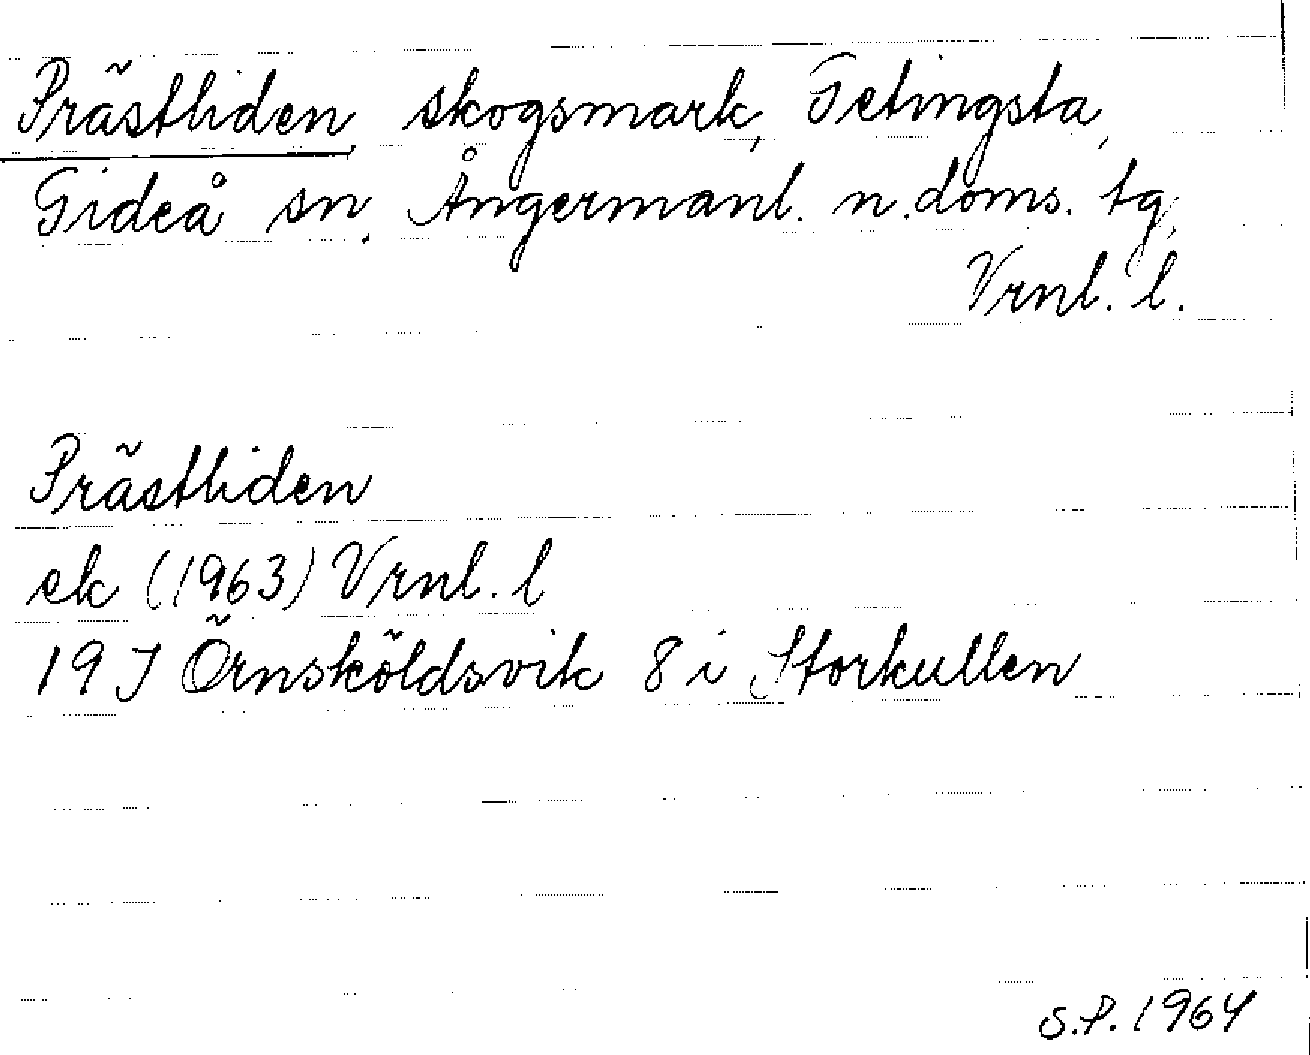 Prästliden, skogsmark, Getingsta,
Gideå sn, Ångermanl. n. doms. tg,
Vrnl. l.
Prästliden
ek (1963) Vrnl. l
19 J Örnsköldsvik 8 i Storkullen
S.P. 1964